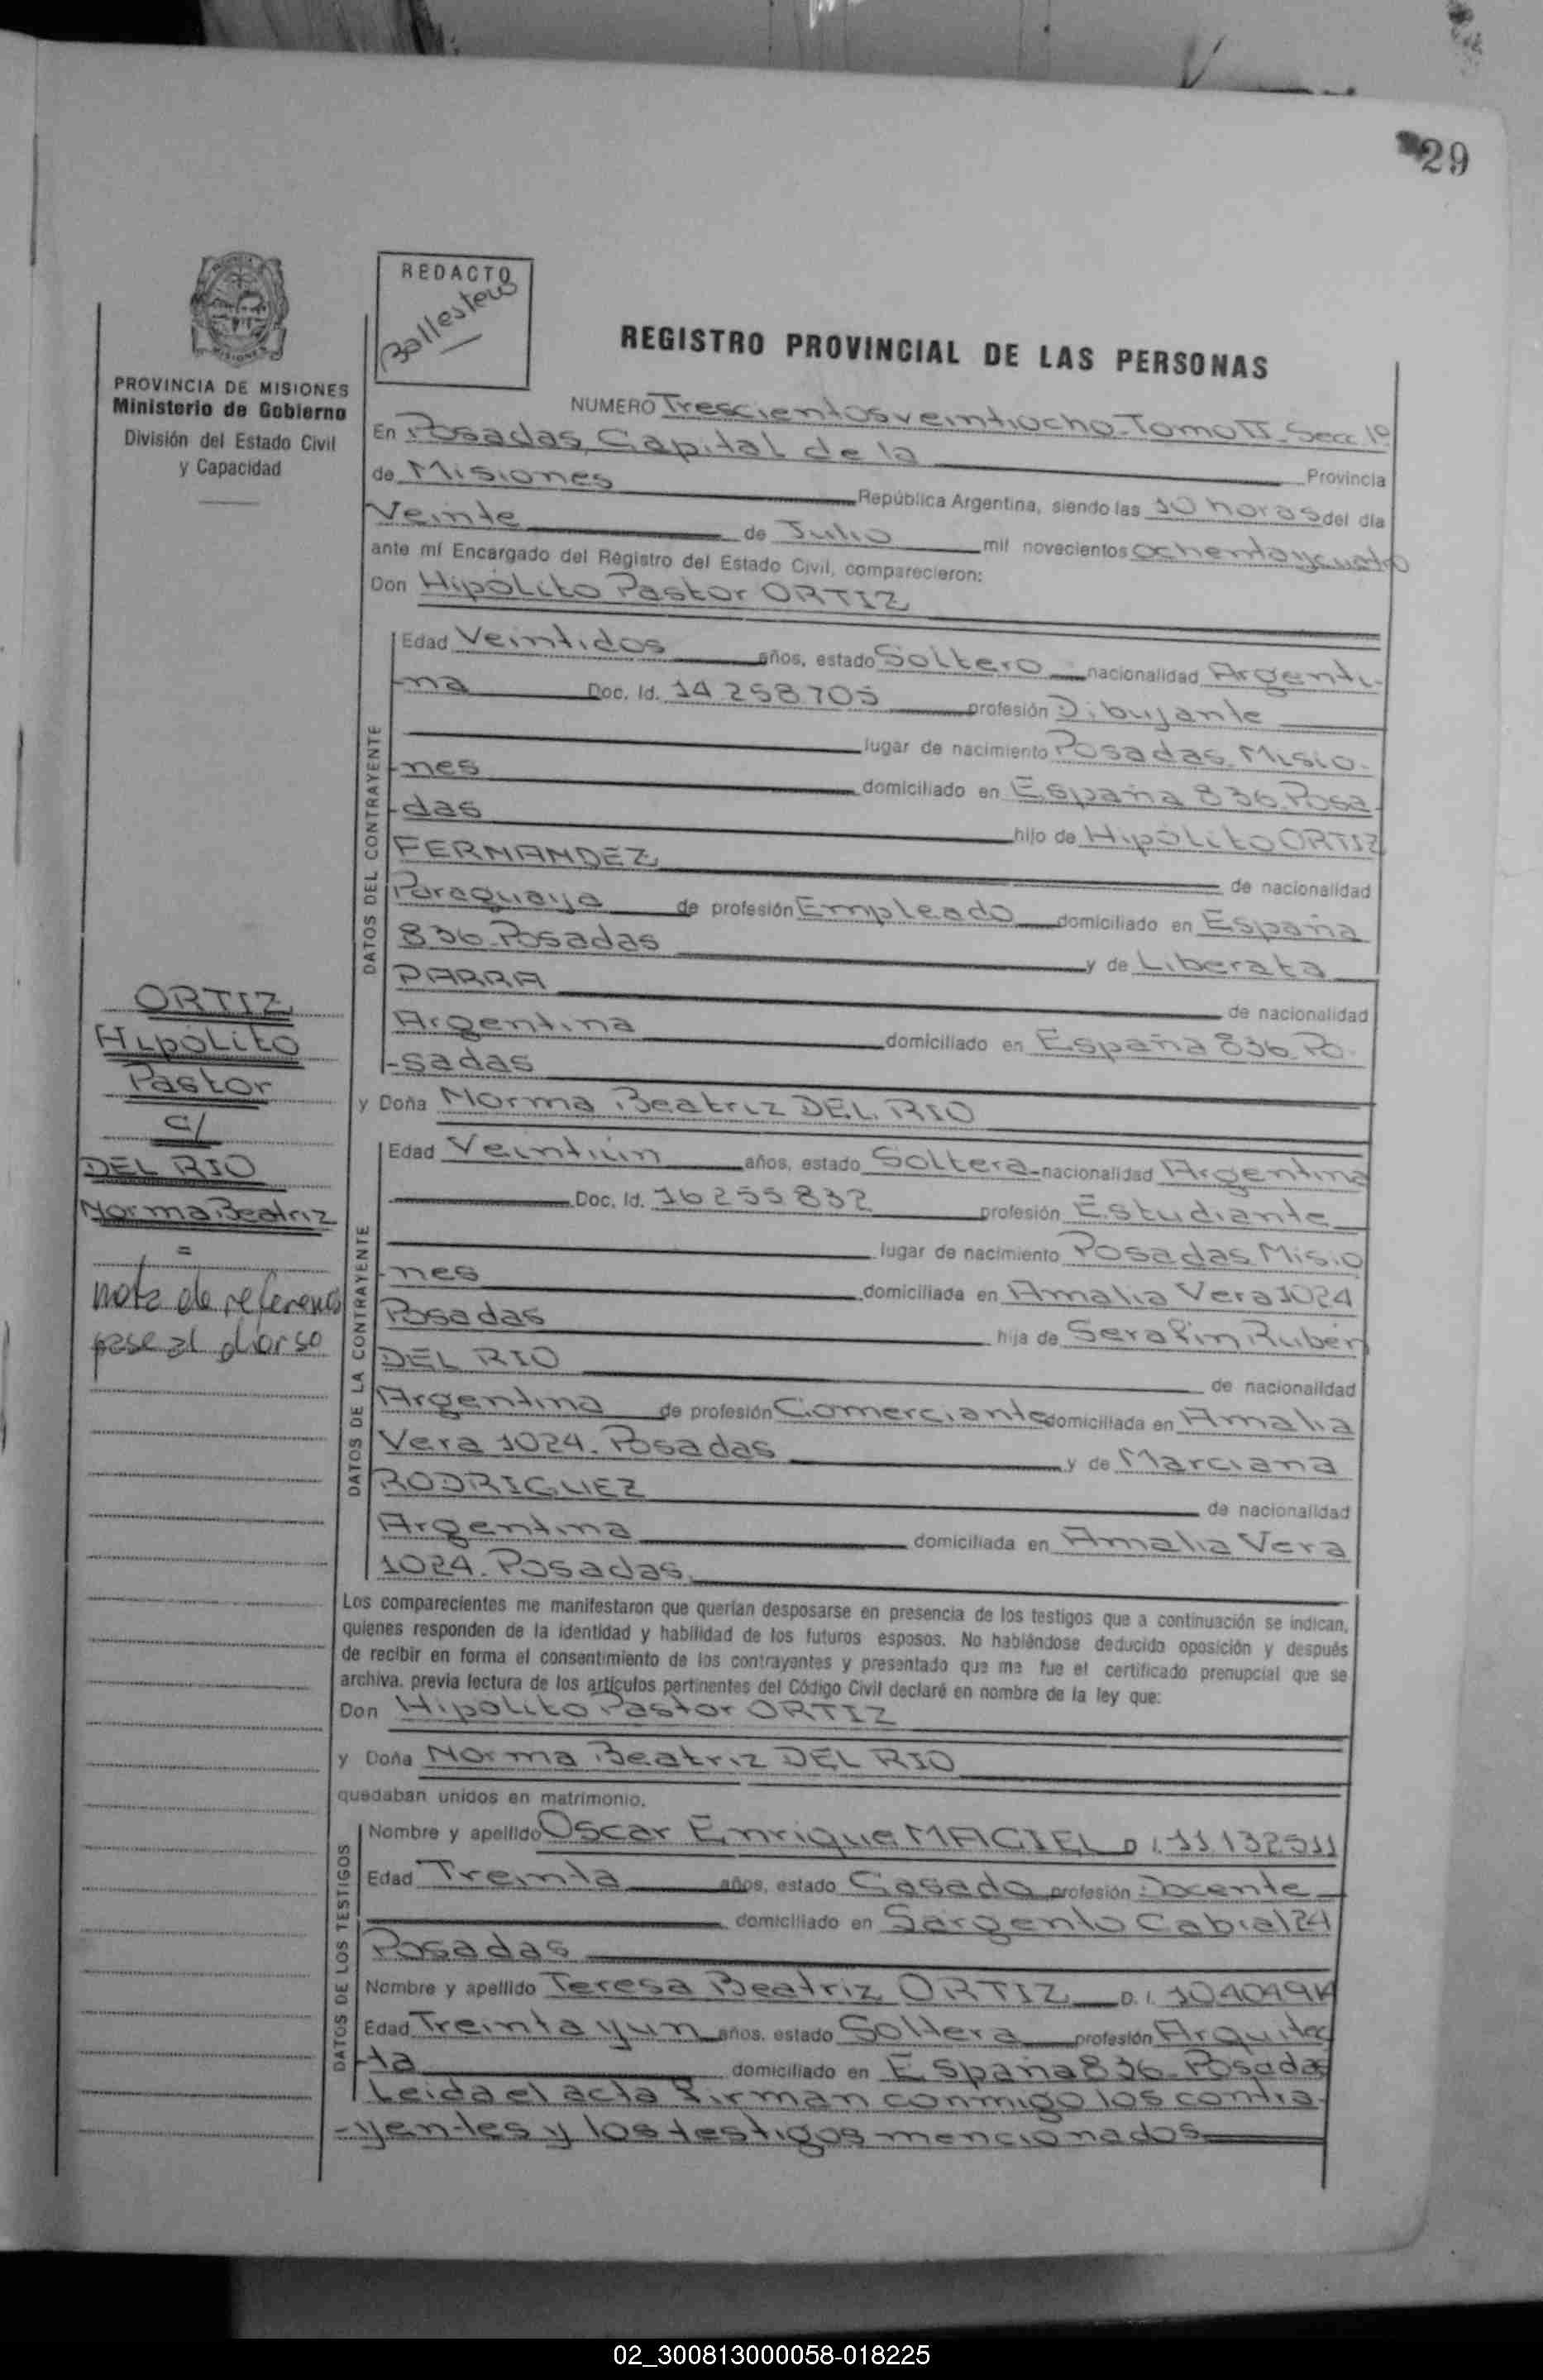 29
REDACTO
Ballesteros
REGISTRO PROVINCIAL DE LAS PERSONAS
PROVINCIA DE MISIONES
Ministerio de Gobierno
División del Estado Civil
y Capacidad
NUMERO Trescientos veintiocho. Tomo II. Secc 1º
En Posadas, Capital de la Provincia
de Misiones República Argentina, siendo las 10 horas del día
Veinte de Julio mil novecientos ochenta y cuatro
ante mí Encargado del Registro del Estado Civil, comparecieron:
Don Hipólito Pastor ORTIZ
DATOS DEL CONTRAYENTE
Edad Veintidos años, estado Soltero nacionalidad Argenti-
-na Doc. Id. 14.258.705 profesión Dibujante
lugar de nacimiento Posadas. Misio-
-nes domiciliado en España 836. Posa-
-das hijo de Hipólito ORTIZ
FERNANDEZ de nacionalidad
Paraguaya de profesión Empleado domiciliado en España
836. Posadas y de Liberata
PARRA de nacionalidad
Argentina domiciliado en España 836. Po-
-sadas
y Doña Norma Beatriz DEL RIO
DATOS DE LA CONTRAYENTE
Edad Veintiún años, estado Soltera nacionalidad Argentina
Doc. Id. 16255832 profesión Estudiante
lugar de nacimiento Posadas Misio
-nes domiciliada en Amalia Vera 1024
Posadas hija de Serafín Rubén
DEL RIO de nacionalidad
Argentina de profesión Comerciante domiciliada en Amalia
Vera 1024. Posadas y de Marciana
RODRIGUEZ de nacionalidad
Argentina domiciliada en Amalia Vera
1024. Posadas.
Los comparecientes me manifestaron que querían desposarse en presencia de los testigos que a continuación se indican,
quienes responden de la identidad y habilidad de los futuros esposos. No habiéndose deducido oposición y después
de recibir en forma el consentimiento de los contrayentes y presentado que me fue el certificado prenupcial que se
archiva, previa lectura de los artículos pertinentes del Código Civil declaré en nombre de la ley que:
Don Hipólito Pastor ORTIZ
y Doña Norma Beatriz DEL RIO
quedaban unidos en matrimonio.
DATOS DE LOS TESTIGOS
Nombre y apellido Oscar Enrique MACIEL D.I. 11132511
Edad Treinta años, estado Casado profesión Docente
domiciliado en Sargento Cabral 24
Posadas
Nombre y apellido Teresa Beatriz ORTIZ D.I.
Edad Treinta y un años, estado Soltera profesión Arquitec
-ta domiciliado en España 836. Posadas
Leida el acta firman conmigo los contra-
-yentes y los testigos mencionados
ORTIZ
Hipólito
Pastor
c/
DEL RIO
Norma Beatriz
=
nota de referencia
pase al dorso
02_300813000058-018225